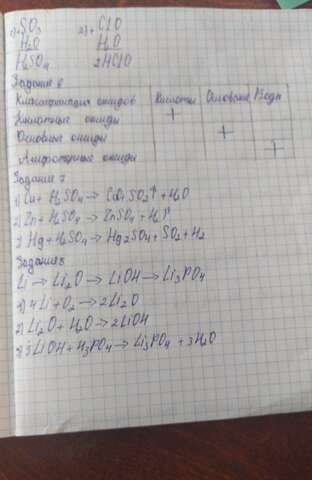 1) + SO3 2) + Cl O
H2O H2O
H2SO4 2HClO
Задание 6
Классификация оксидов Кислоты Основание Вода
Кислотные оксиды +
Основные оксиды +
Амфотерные оксиды +
Задание 7
1) Cu + H2SO4 → SO2↑ + H2O
2) Zn + H2SO4 → ZnSO4 + H2↑
3) Hg + H2SO4 → Hg2SO4 + SO2 + H2
Задание 8
Li → Li2O → LiOH → Li3PO4
1) 4Li + O2 → 2Li2O
2) Li2O + H2O → 2LiOH
3) 3LiOH + H3PO4 → Li3PO4 + 3H2O